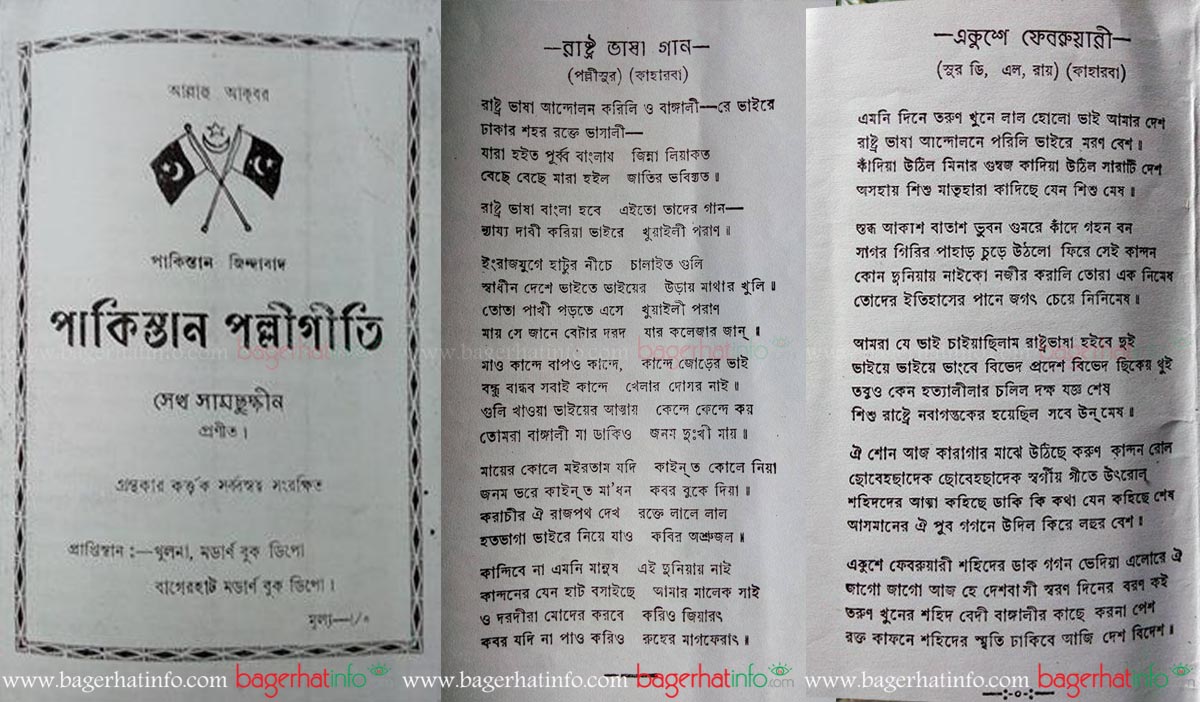 আল্লাহু আকবর
পাকিস্তান জিন্দাবাদ
পাকিস্তান পল্লীগীতি
সেখ সামছুদ্দীন
প্রণীত।
গ্রন্থকার কর্ত্তৃক সর্ব্বস্বত্ব সংরক্ষিত
প্রাপ্তিস্থান :—খুলনা, মডার্ণ বুক ডিপো
বাগেরহাট মডার্ণ বুক ডিপো।
মূল্য—।/০
—রাষ্ট্র ভাষা গান—
(পল্লীসুর) (কাহারবা)
রাষ্ট্র ভাষা আন্দোলন করিলি ও বাঙ্গালী—রে ভাইরে
ঢাকার শহর রক্তে ভাসালী—
যারা হইত পূর্ব্ব বাংলায় জিন্না লিয়াকত
বেছে বেছে মারা হইল জাতির ভবিষ্যত॥
রাষ্ট্র ভাষা বাংলা হবে এইতো তাদের গান—
ন্যায্য দাবী করিয়া ভাইরে খুয়াইলী পরাণ॥
ইংরাজযুগে হাটুর নীচে চালাইত গুলি
স্বাধীন দেশে ভাইতে ভাইয়ের উড়ায় মাথার খুলি॥
তোতা পাখী পড়তে এসে খুয়াইলী পরাণ
মায় সে জানে বেটার দরদ যার কলেজার জান্॥
মাও কান্দে বাপও কান্দে, কান্দে জোড়ের ভাই
বন্ধু বান্ধব সবাই কান্দে খেলার দোসর নাই॥
গুলি খাওয়া ভাইয়ের আত্মায় কেন্দে কেন্দে কয়
তোমরা বাঙ্গালী মা ডাকিও জনম দুঃখী মায়॥
মায়ের কোলে মইরতাম যদি কাইন্‌ত কোলে নিয়া
জনম ভরে কাইন্‌ত মা'ধন কবর বুকে দিয়া॥
করাচীর ঐ রাজপথ দেখ রক্তে লালে লাল
হতভাগা ভাইরে নিয়ে যাও কবির অশ্রুজল॥
কান্দিবে না এমনি মানুষ এই দুনিয়ায় নাই
কান্দনের যেন হাট বসাইছে আমার মালেক সাই
ও দরদীরা মোদের করবে করিও জিয়ারৎ
কবর যদি না পাও করিও রুহের মাগফেরাৎ॥
—একুশে ফেবরুয়ারী—
(সুর ডি, এল, রায়) (কাহারবা)
এমনি দিনে তরুণ খুনে লাল হোলো ভাই আমার দেশ
রাষ্ট্র ভাষা আন্দোলনে পরিলি ভাইরে মরণ বেশ॥
কাঁদিয়া উঠিল মিনার গুম্বজ কাদিয়া উঠিল সারাটি দেশ
অসহায় শিশু মাতৃহারা কাদিছে যেন শিশু মেষ॥
শুব্ধ আকাশ বাতাশ ভুবন গুমরে কাঁদে গহন বন
সাগর গিরির পাহাড় চুড়ে উঠলো ফিরে সেই কান্দন
কোন দুনিয়ায় নাইকো নজীর করালি তোরা এক নিমেষ
তোদের ইতিহাসের পানে জগৎ চেয়ে নিনিমেষ॥
আমরা যে ভাই চাইয়াছিলাম রাষ্ট্রভাষা হইবে দুই
ভাইয়ে ভাইয়ে ভাংবে বিভেদ প্রদেশ বিভেদ ছিকেয় থুই
তবুও কেন হত্যালীলার চলিল দক্ষ যজ্ঞ শেষ
শিশু রাষ্ট্রে নবাগন্তকের হয়েছিল সবে উন্‌মেষ॥
ঐ শোন আজ কারাগার মাঝে উঠিছে করুণ কান্দন রোল
ছোবেহছাদেক ছোবেহছাদেক স্বর্গীয় গীতে উৎরোল্
শহিদদের আত্মা কহিছে ডাকি কি কথা যেন কহিছে শেষ
আসমানের ঐ পুব গগনে উদিল কিরে লহুর বেশ॥
একুশে ফেবরুয়ারী শহিদের ডাক গগন ভেদিয়া এলোরে ঐ
জাগো জাগো আজ হে দেশবাসী স্মরণ দিনের বরণ কই
তরুণ খুনের শহিদ বেদী বাঙ্গালীর কাছে করনা পেশ
রক্ত কাফনে শহিদের স্মৃতি ঢাকিবে আজি দেশ বিদেশ॥
—:০:—
www.bagerhatinfo.com bagerhatinfo.com
www.bagerhatinfo.com bagerhatinfo.com
www.bagerhatinfo.com bagerhatinfo.com
www.bagerhatinfo.com bagerhatinfo.com
www.bagerhatinfo.com bagerhatinfo.com
www.bagerhatinfo.com bagerhatinfo.com